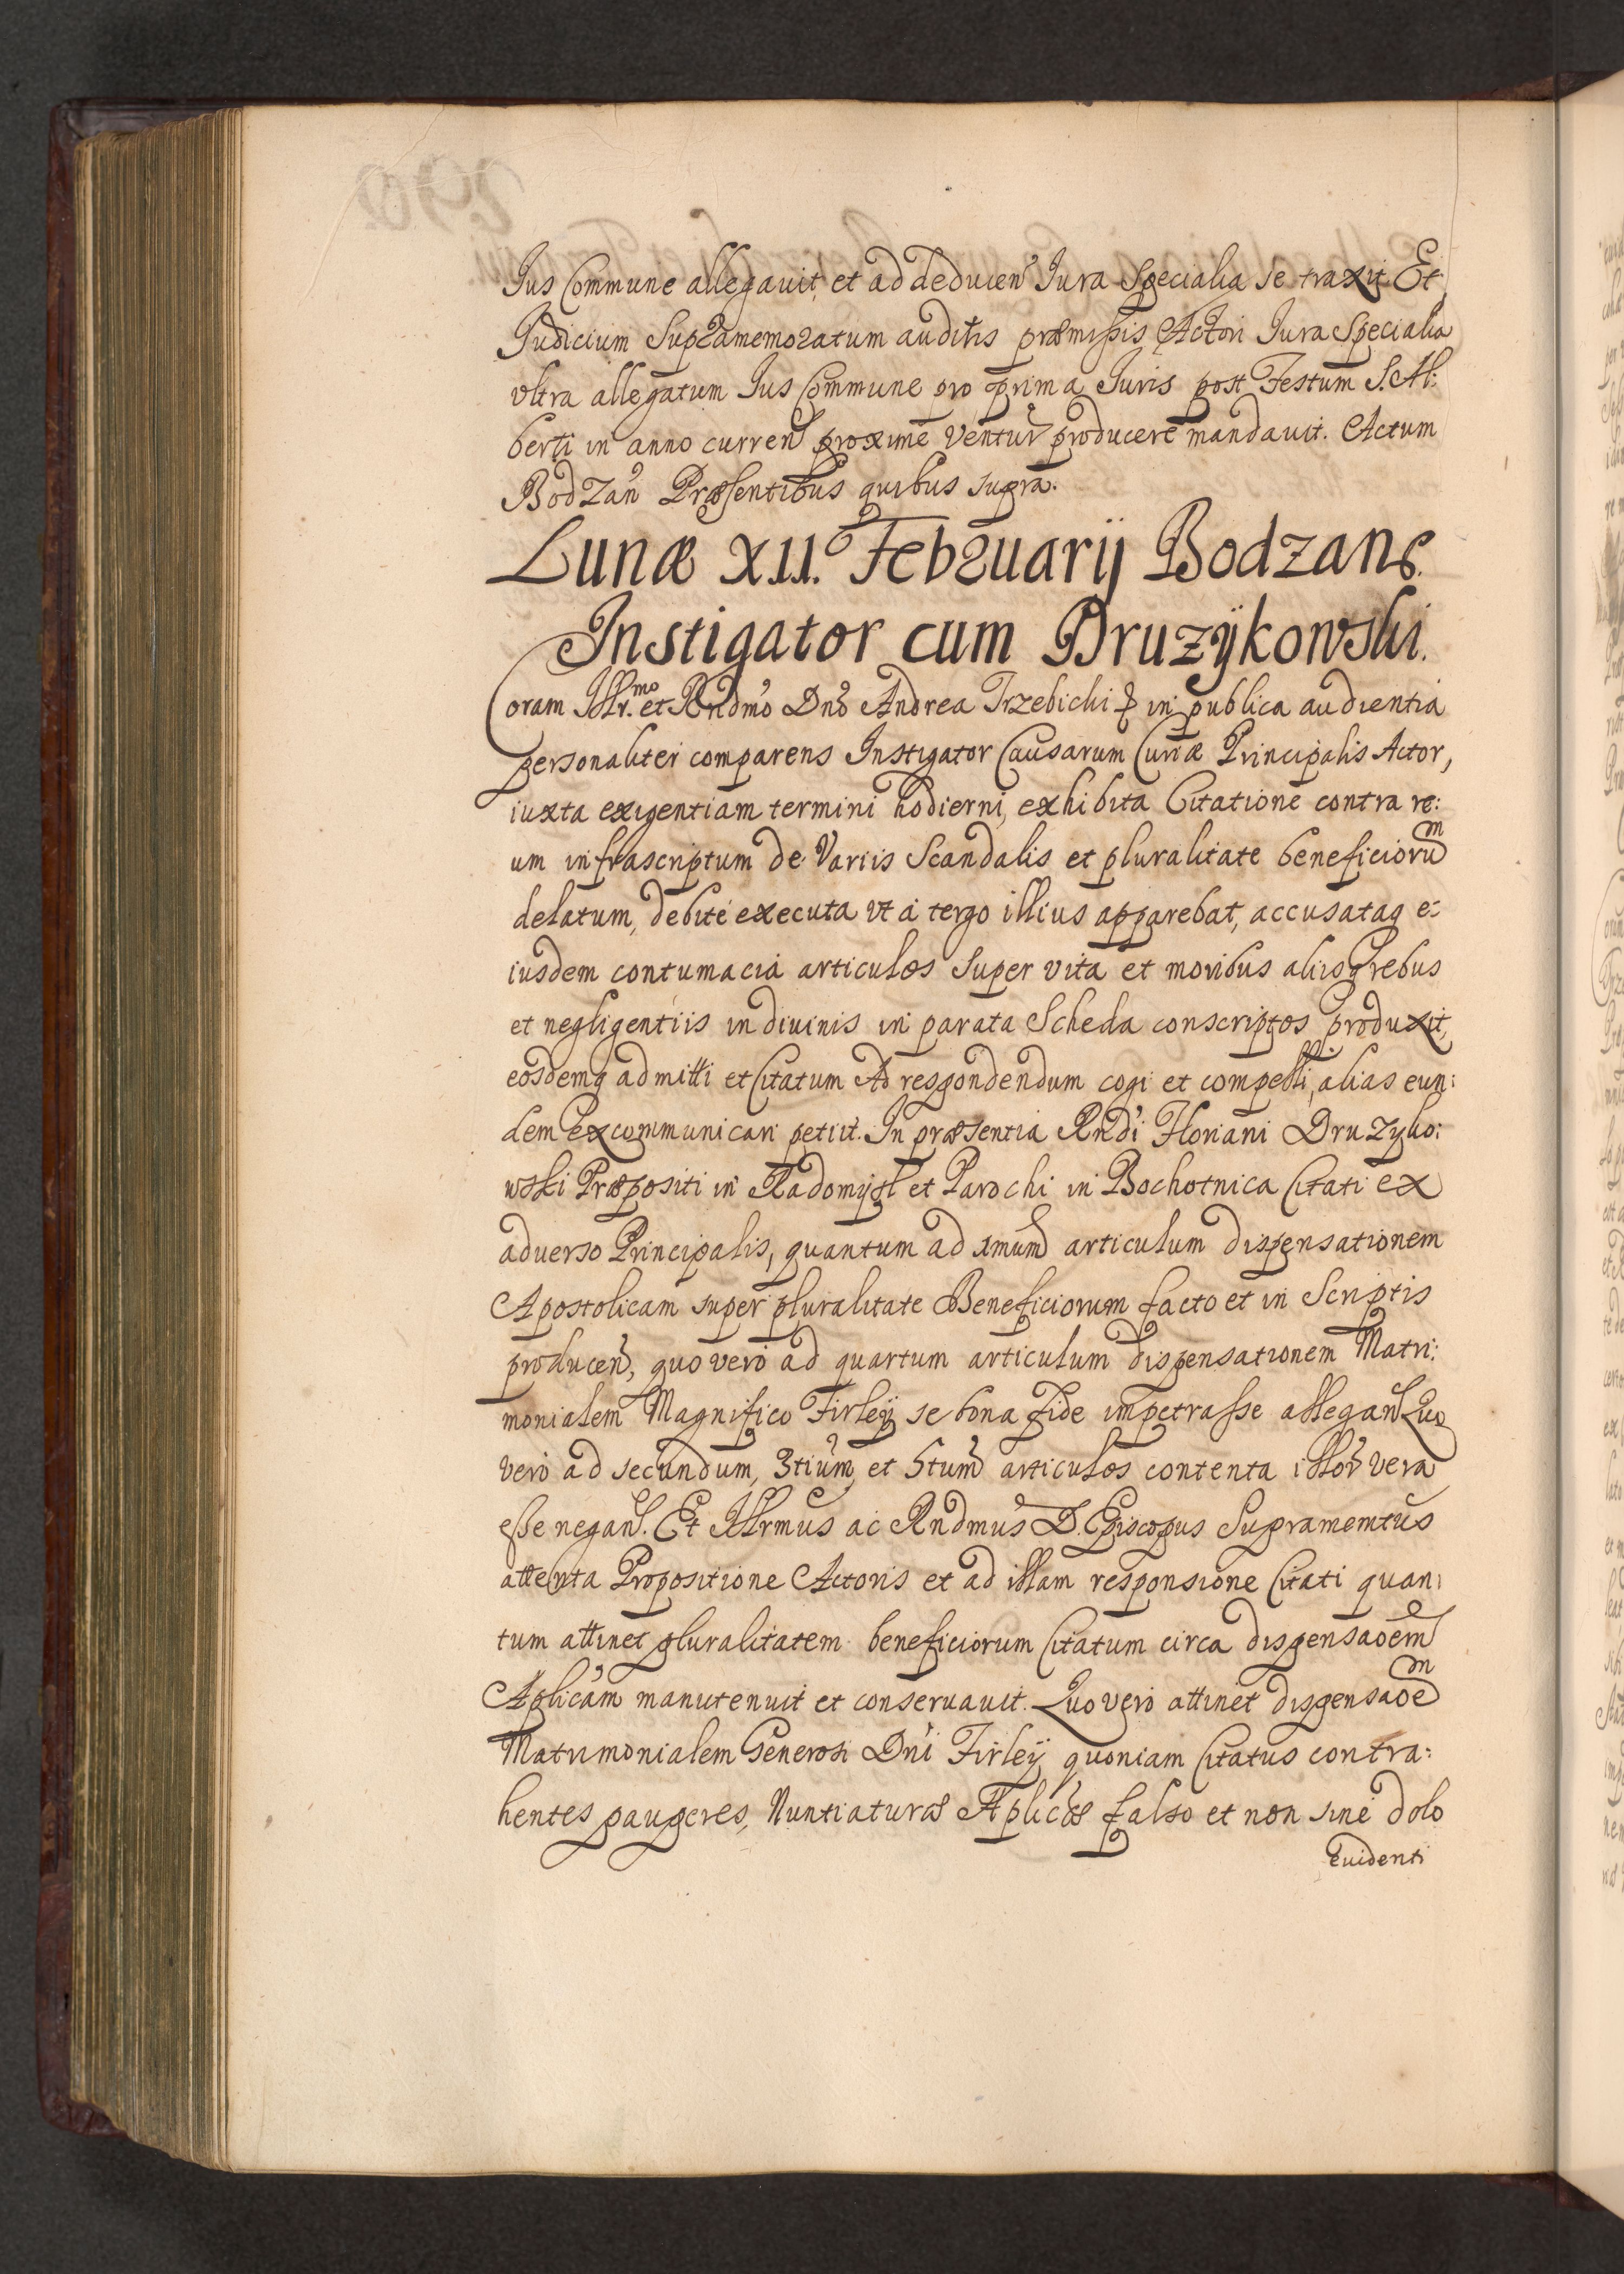 Jus Commune allegauit, et ad deducen̄ Iura Specialia se traxit. Et
Judicium Supramemoratum auditis præmissis Actori Iura Specialia
vltra allegatum Jus Commune pro prima Iuris post Festum S. Al:
berti in anno curren̄ proxime Ventur̄ producere mandauit. Actum
Bodzan̄ Præsentibus quibus supra.
Lunæ XII. Februarij Bodzans.
Instigator cum Druzÿkowski.
Coram Illr.mo et Rndmo Dno Andrea Trzebicki & in publica audientia
personaliter comparens Instigator Causarum Curiæ Principalis Actor,
iuxta exigentiam termini hodierni, exhibita Citatione contra re:
um infrascriptum de Variis Scandalis et pluralitate beneficiorum
delatum, debité executa vt á tergo illius apparebat, accusataq e:
iusdem contumacia articulos super vita et moribus aliisq rebus
et negligentiis in diuinis in parata Scheda conscriptos produxit,
eosdemq admitti et Citatum Ad respondendum cogi et compelli, alias eun:
dem excommunicari petiit. In præsentia Rndi Floriani Druzyko:
wski Præpositi in Radomysl et Parochi in Bochotnica Citati ex
aduerso Principalis, quantum ad 1mum articulum dispensationem
Apostolicam super pluralitate Beneficiorum facto et in Scriptis
producen̄, quo vero ad quartum articulum dispensationem Matri:
monialem Magnifico Firleÿ se bona fide impetrasse allegan̄ Quo
vero ad secundum, 3tium, et 5tum articulos contenta illor̄ vera
esse negan̄. Et Illrmus ac Rndmus D. Episcopus Supramemtus
attenta Propositione Actoris et ad illam responsione Citati quan:
tum attinet pluralitatem beneficiorum Citatum circa dispensaoem
Aplicam manutenuit et conseruauit. Quo vero attinet dispensaoem
Matrimonialem Generosi Dni Firleÿ, quoniam Citatus contra:
hentes pauperes, Nuntiaturæ Aplicæ falso et non sine dolo
Euidenti